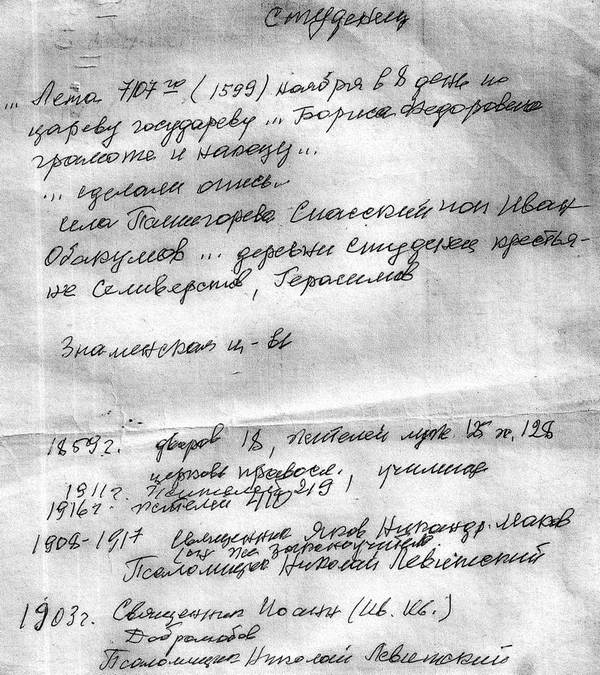 Студенец
... Лета 7107го (1599) ноября в 8 день по
цареву государеву ... Бориса Федоровича
грамоте и наказу...
... сделали опись
села Спасский поп Иван
Обакумов ... деревни Студенец крестья-
не Селиверстов, Герасимов
Знаменская ц-вь
1859г. дворов 18, жителей муж. ж. 128
церковь правосл., училище
1911г. жителей 219
1916г. жителей
1908-1917 священник Яков Никандр. Маков
(он же законоучитель)
Псаломщик Николай Левитский
1903г. Священник Иоанн (Ив. Ив.)
Добромобов
Псаломщик Николай Левитский